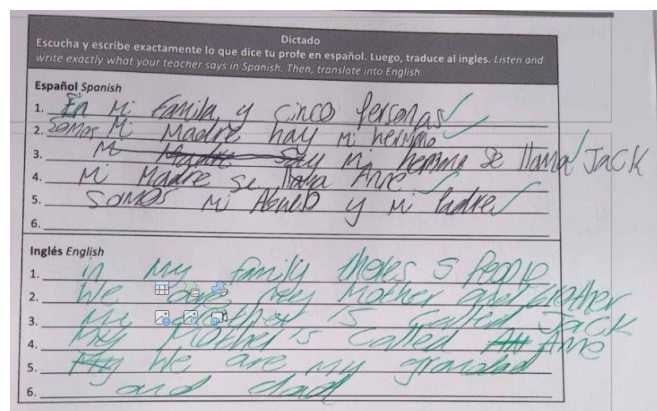 Dictado
Escucha y escribe exactamente lo que dice tu profe en español. Luego, traduce al ingles. Listen and
write exactly what your teacher says in Spanish. Then, translate into English.
Español Spanish
1. En Mi Famila, y cinco personas
2. Somos Mi Madre hay mi hermno
3. Mi mi hermno se llama JACK
4. Mi Madre se llama Anne
5. Somos mi Abuelo y mi Padre
6.
Inglés English
1. in My family theres 5 People
2. We are My Mother and brother
3. My brother is called JACK
4. My Mother is called Anne
5. We are my grandad
6. and dad